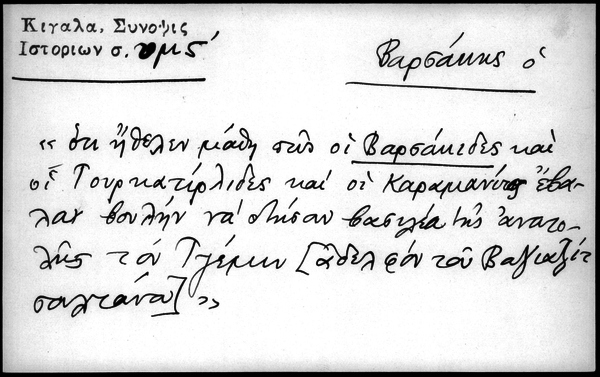 Κιγαλα, Συνοψις
Ιστοριων σ. υμς΄
Βαρσάκης ὁ
« ὅτι ἤθελεν μάθη πῶς οἱ Βαρσάκιδες καὶ
οἱ Τουρκατιρλιδες καὶ οἱ Καραμανίται ἔβα-
λαν βουλὴν νὰ στήσουν βασιλέα τῆς ἀνατο-
λῆς τὸν Τζέμην [ἀδελφὸν τοῦ Βαγιαζὶτ
σουλτάνου] »